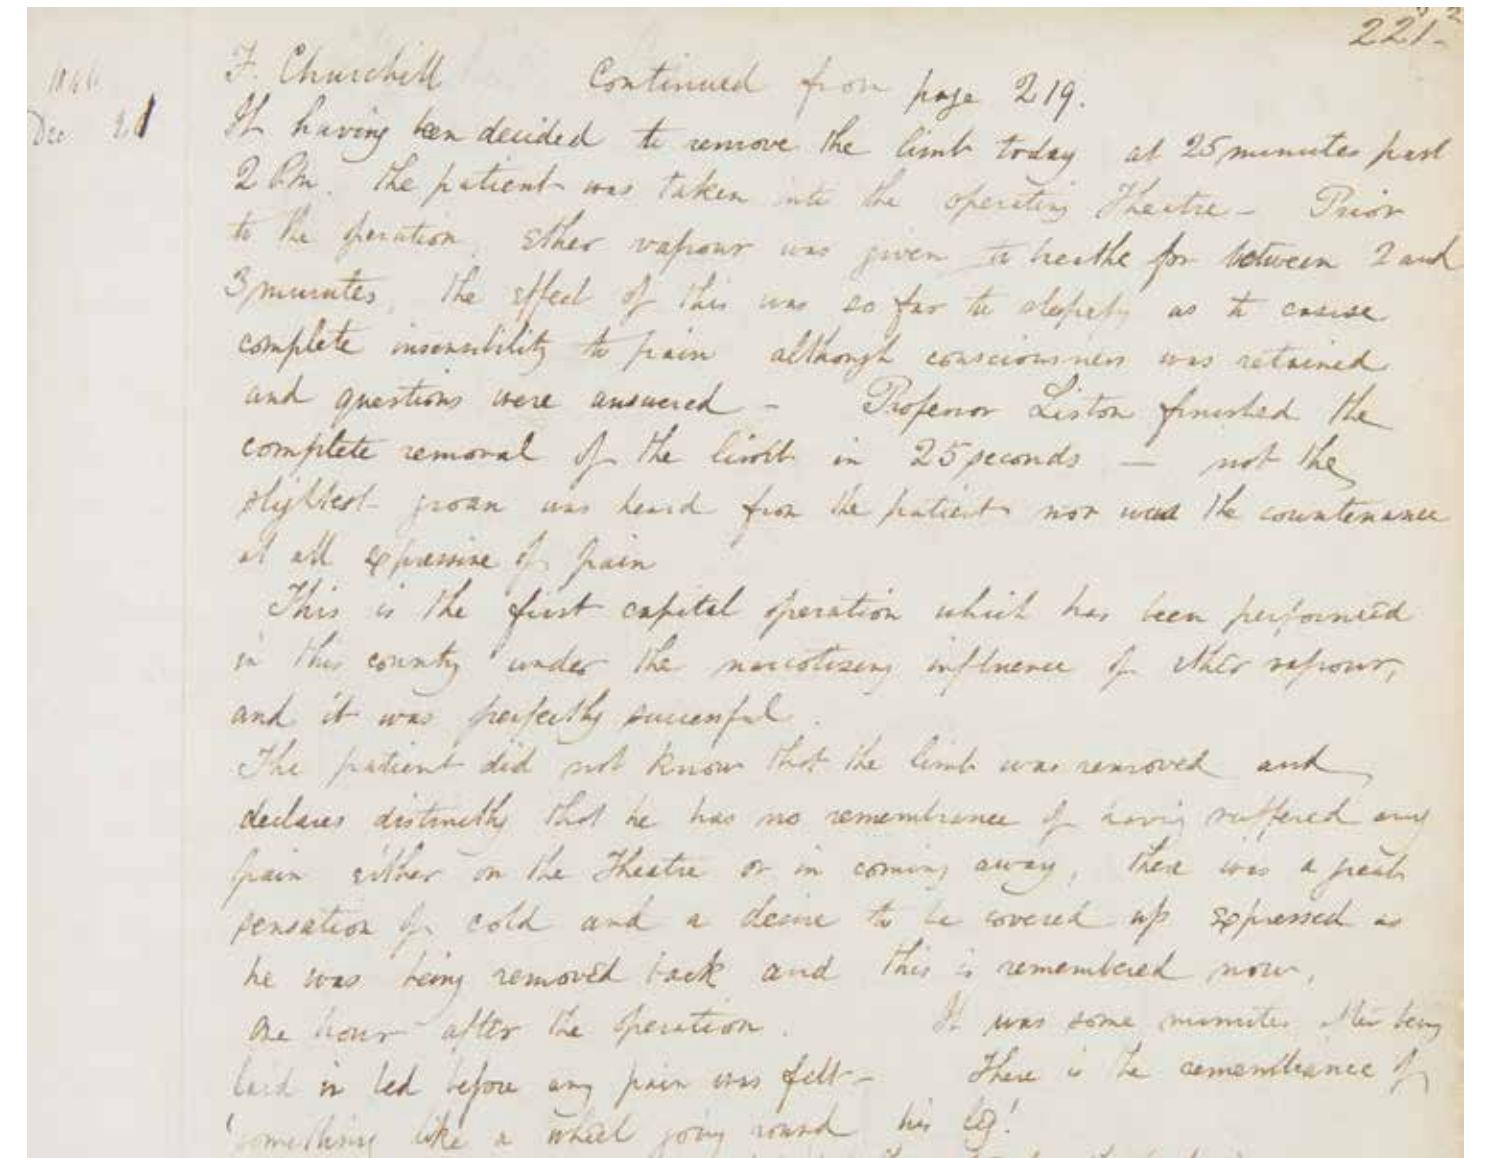 221-
1846
Dec 21
F. Churchill Continued from page 219.
It having been decided to remove the limb today at 25 minutes past
2 P.m. the patient was taken into the operating Theatre - Prior
to the operation, Ether vapour was given to breathe for between 2 and
3 minutes, the effect of this was so far to as to cause
complete insensibility to pain although consciousness was retained
and questions were answered - Professor Liston finished the
complete removal of the limb in 25 seconds — not the
slightest groan was heard from the patient nor was the countenance
at all expressive of pain
This is the first capital operation which has been performed
in this county under the narcotizing influence of ether vapour,
and it was perfectly successful.
The patient did not know that the limb was removed and
declares distinctly that he has no remembrance of having suffered any
pain either in the Theatre or in coming away, there was a great
sensation of cold and a desire to be covered up expressed as
he was being removed back and this is remembered now,
one hour after the operation. It was some minutes after being
laid in bed before any pain was felt - There is the remembrance of
'something like a wheel going round his leg'